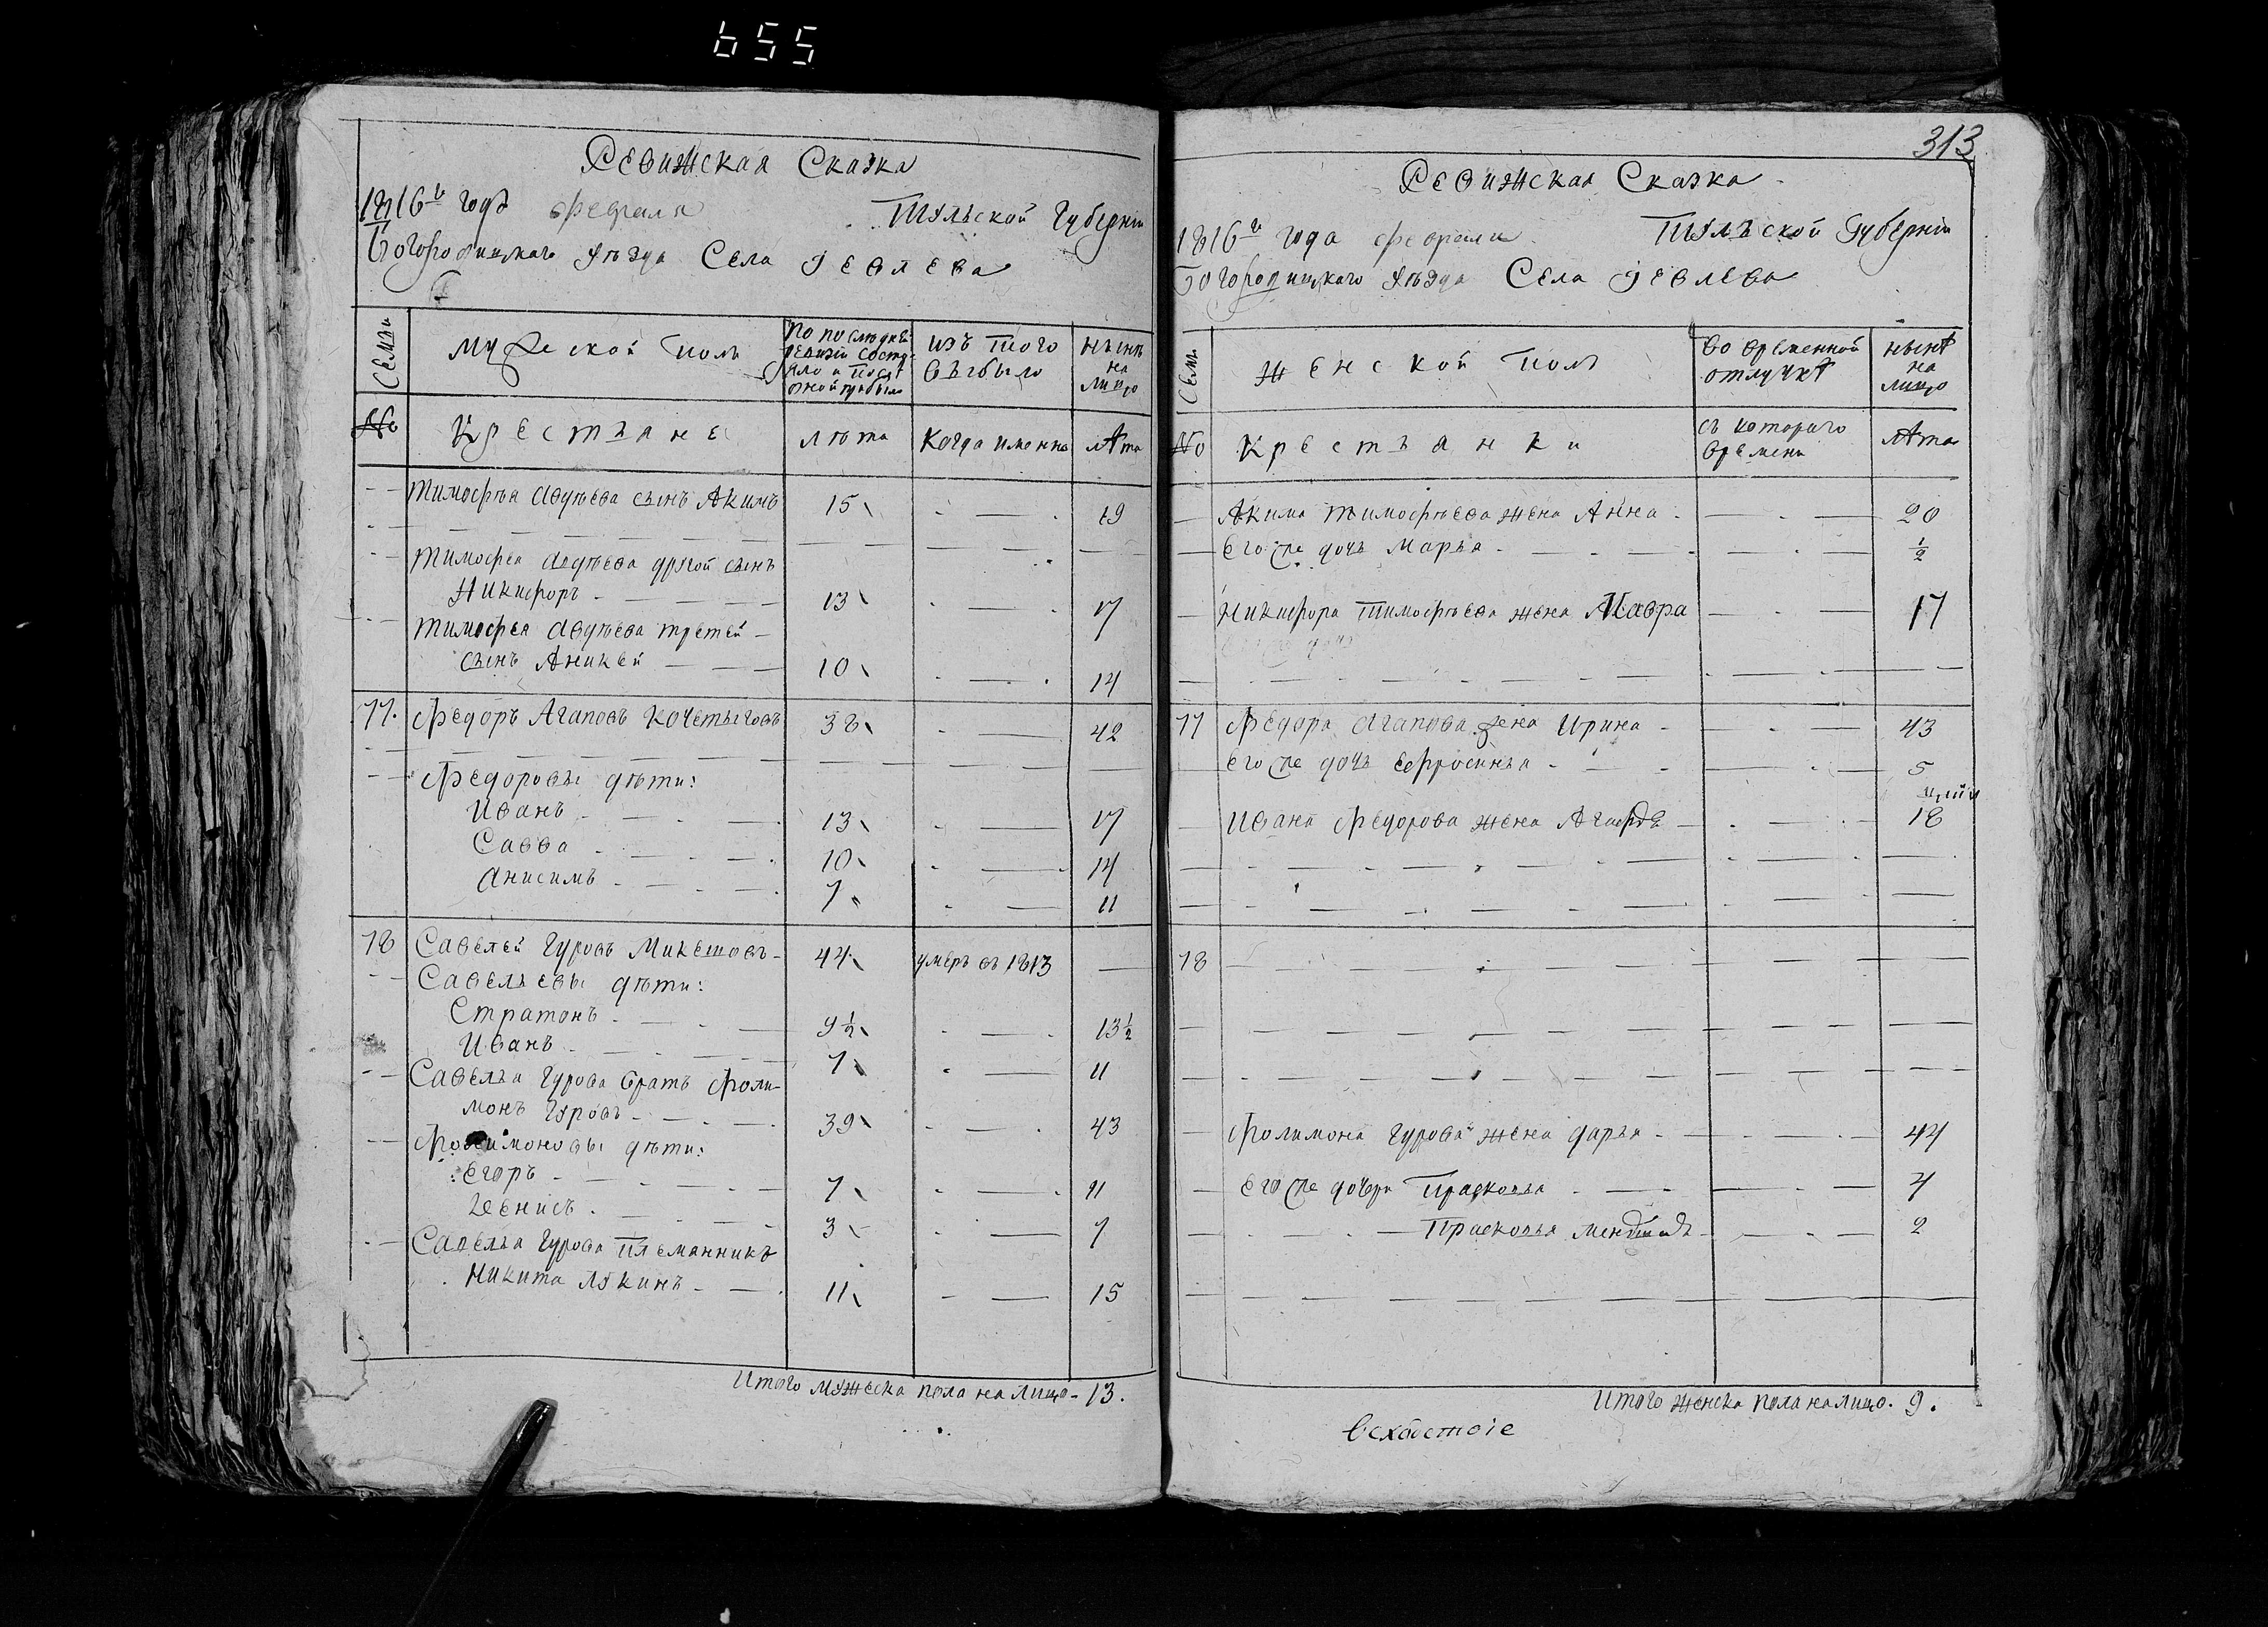 655
Ревижская Сказка
1816го годъ февраля Тульской Губерніи
Богородицкаго уѣзда Села Іевлева
Семьи
мужеской полъ
по последней ревизіи состояло и после оной прибыло
изъ того выбыло
нынѣ на лицо
№
Крестьяне
лѣта
когда именно
лѣта
Тимофѣя Авдѣева сынъ Акимъ 15 19
Тимофея Авдѣева другой сынъ
Никифоръ 13 17
Тимофея Авдѣева третей
сынъ Аникей 10 14
77. Федоръ Агаповъ Кочетыговъ 38 42
Федоровы дѣти:
Иванъ 13 17
Савва 10 14
Анисимъ 7 11
78 Савелей Гуровъ Микешовъ 44 умеръ въ 1813
Савельевы дѣти:
Стратонъ 9½ 13½
Иванъ 7 11
Савелья Гурова братъ Фоли-
монъ Гуровъ 39 43
Фолимоновы дѣти:
Егоръ 7 11
Денисъ 3 7
Савелья Гурова племянникъ
Никита Лукинъ 11 15
Итого мужеска пола на лицо - 13.
313
Ревижская Сказка
1816го года февраля Тульской Губерніи
Богородицкаго уѣзда Села Іевлева
Семьи
женской полъ
во временной отлучкѣ
нынѣ на лицо
№
Крестьянки
съ котораго времени
лѣта
Акима Тимофѣева жена Анна 20
его же дочь Марья ½
Никифора Тимофѣева жена Мавра 17
77 Федора Агапова жена Ирина 43
его же дочь Ефросинья 5
Ивана Федорова жена Агафья 18
78
Фолимона Гурова жена Дарья 44
его же дочери Прасковья 4
Прасковья меншая 2
Итого женска пола на лицо. 9.